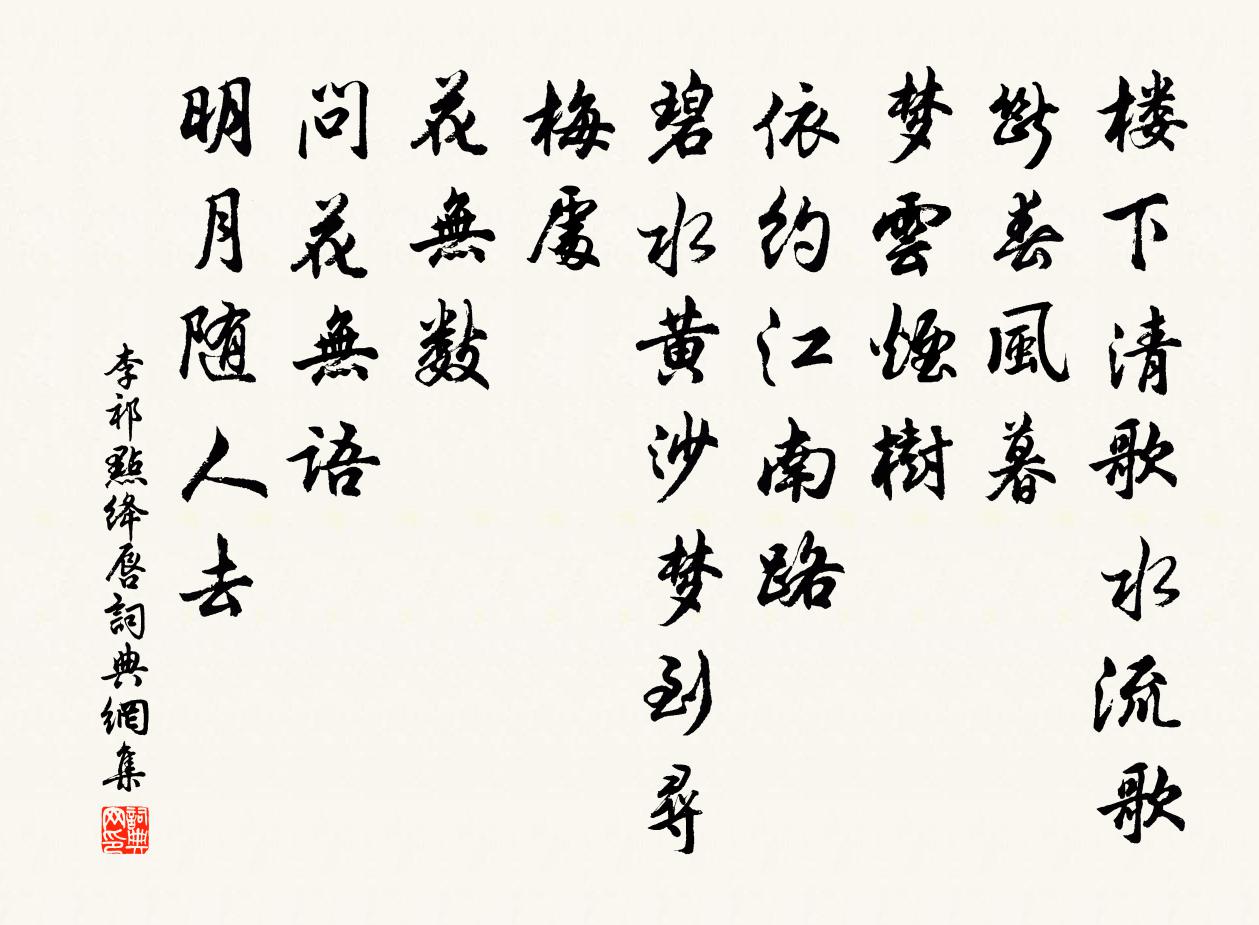 楼下清歌水流歌
断春風暮
梦雲煙樹
依约江南路
碧水黄沙梦到尋
梅處
花無数
問花無語
明月随人去
李祁點绛唇詞典網集
詞典网印